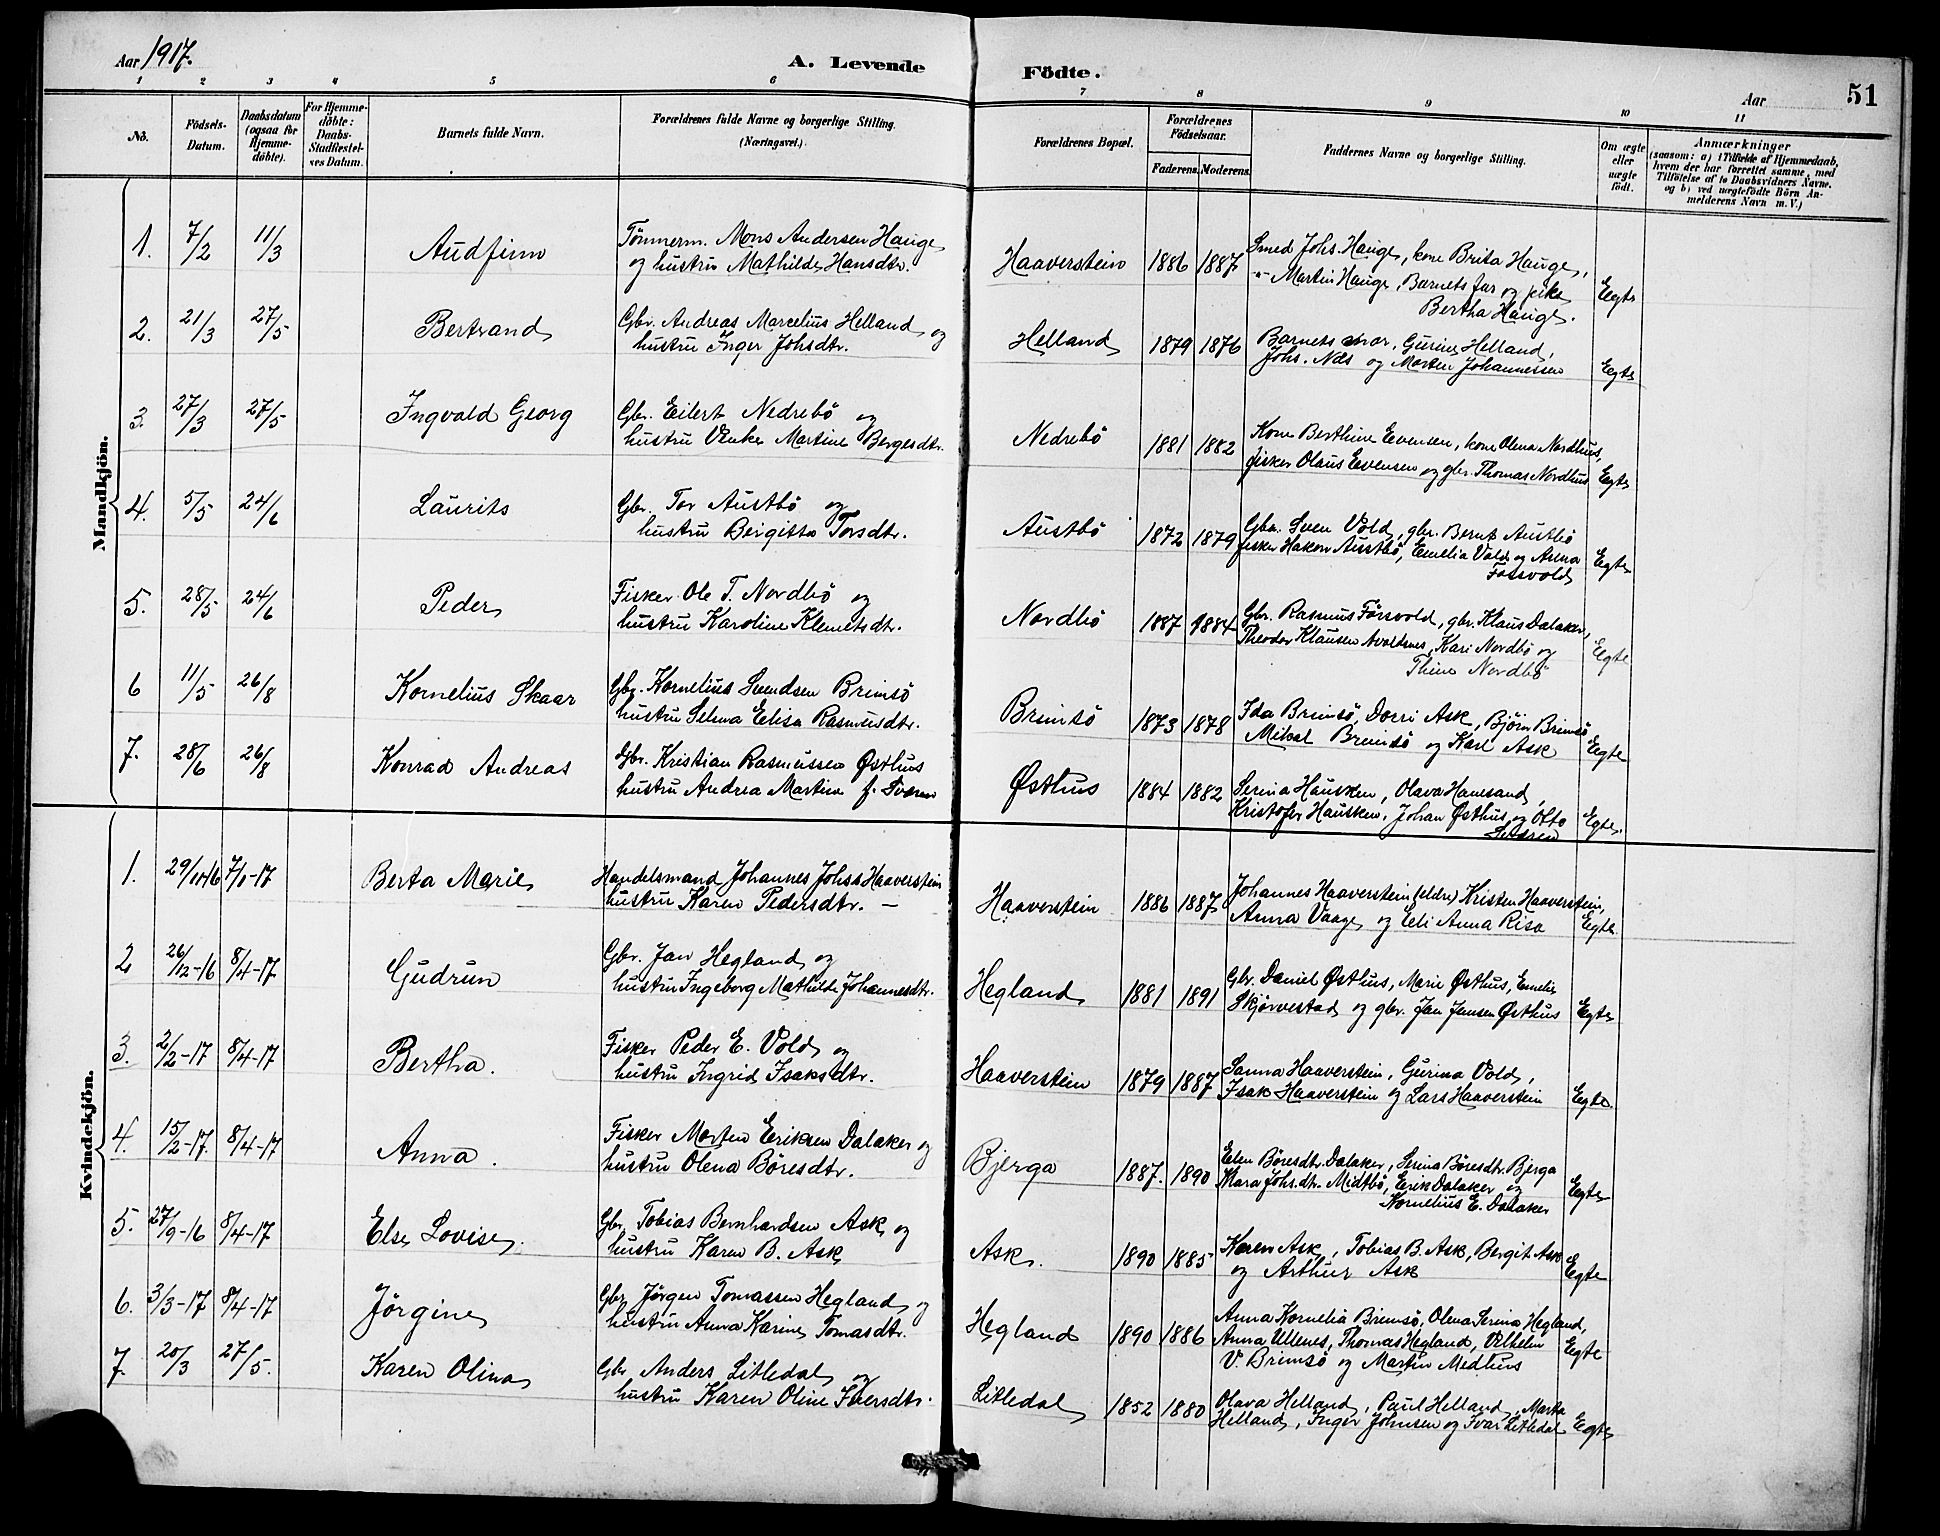 Aar 1917. A. Levende Födte. Aar 51
1 2 3 4 5 6 7 8 9 10 11
No. Födsels-Datum. Daabsdatum (ogsaa for Hjemme-döbte). For Hjemme-döbte: Daabs-Stadfæstel-ses Datum. Barnets fulde Navn. Forældrenes fulde Navne og borgerlige Stilling. (Næringsvei.) Forældrenes Bopæl. Forældrenes Födselsaar. Faderens. Moderens. Faddernes Navne og borgerlige Stilling. Om ægte eller uægte födt. Anmærkninger
(saasom: a) i Tilfælde af Hjemmedaab, hvem der har forrettet samme, med Tilföielse af to Daabsvidners Navne, og b) ved uægtefödte Börn An-melderens Navn m. V.)
Mandkjön.
1. 7/2 11/3 Audfinn Tömmerm. Mons Andersen Hauge Haaverstein 1886 1887 Smed Johs. Hauge, kone Brita Hauge,
og hustru Mathilde Hansdtr. -"- Martin Hauge, Barnets far og pike Egte
Bertha Hauge.
2. 21/3 27/5 Bertrand Gbr. Andreas Marcelius Helland og Helland 1879 1876 Barnets mor, Gurine Helland,
hustru Inger Johsdtr. Johs. Næs og Morten Johannessen Egte
3. 27/3 27/5 Ingvald Georg Gbr. Eilert Nedrebö og Nedrebö 1881 1882 Kone Berthine Evensen, kone Olena Nordhus,
hustru Martine Bergesdtr. fisker Olaus Evensen og gbr. Thomas Nordhus Egte
4. 5/5 24/6 Laurits Gbr. Tor Austbö og Austbö 1872 1879 Gbr. Sven Vold, gbr. Bernt Austbö
hustru Bergitta Torsdtr. fisker Hakon Austbö, Emelia Vold og Anna Egte
5. 28/5 24/6 Peder Fisker Ole T. Nordbö og Nordbö 1887 1884 Gbr. Rasmus Försvold, gbr. Klaus Dalaker,
hustru Karoline Klemetsdtr. Theodor Klausen Avaldsnes, Kari Nordbö og Egte
Thine Nordbö
6 11/5 26/8 Kornelius Skaar Gbr. Kornelius Svendsen Brimsö Brimsö 1873 1878 Ida Brimsö, Dorri Ask, Björn Brimsö
hustru Selma Elisa Rasmusdtr. Mikal Brimsö og Karl Ask Egte
7. 28/6 26/8 Konrad Andreas Gbr. Kristian Rasmussen Østhus Østhus 1884 1882 Serina Hausken, Olava Hanesand,
hustru Andrea Martine f. Kristofer Hausken, Johan Østhus og Otto Egte.
Kvindekjön.
1. 29/10-16 7/1-17 Berta Marie Handelsmand Johannes Johs. Haaverstein Haaverstein 1886 1887 Johannes Haaverstein (eldre) Kristen Haaverstein,
hustru Karen Pedersdtr. — Anna Vaage og Eli Anna Risa Egte.
2 26/12-16 8/4-17 Gudrun Gbr. Jan Hegland og Hegland 1881 1891 Gbr. Daniel Østhus, Marie Østhus, Emelie
hustru Ingeborg Mathilde Johannesdtr. Skjörvestad og gbr. Jan Jansen Østhus Egte
3. 2/2-17 8/4-17 Bertha. Fisker Peder E. Vold og Haaverstein 1879 1887 Sanna Haaverstein, Gurina Vold,
hustru Ingrid Isaksdtr. Isak Haaverstein og Lars Haaverstein Egte.
4. 15/2-17. 8/4-17 Anna. Fisker Morten Eriksen Dalaker og Bjerga 1887. 1890 Elen Böresdtr. Dalaker, Serina Böresdtr. Bjerga
hustru Olena Böresdtr. Mara Johsdtr. Midtbö, Erik Dalaker og Egte
Kornelius E. Dalaker
5. 27/9-16 8/4-17 Else Lovise. Gbr. Tobias Bernhardsen Ask og Ask. 1890 1885 Karen Ask, Tobias B. Ask, Bergit Ask
hustru Karen B. Ask og Arthur Ask Egte
6. 3/3-17 8/4-17 Jörgine Gbr. Jörgen Tomassen Hegland og Hegland 1890 1886 Anna Kornelia Brimsö, Olena Serina Hegland,
hustru Anna Karine Tomasdtr. Anna Ullenes, Thomas Hegland, Vilhelm Egte
V. Brimsö og Martin Medhus
7. 20/3 27/5. Karen Olina Gbr. Anders Litledal og Litledal 1852 1880 Olava Helland, Paul Helland, Marta
hustru Karen Oline Iversdtr. Helland, Inger Johnsen og Ivar Litledal Egte